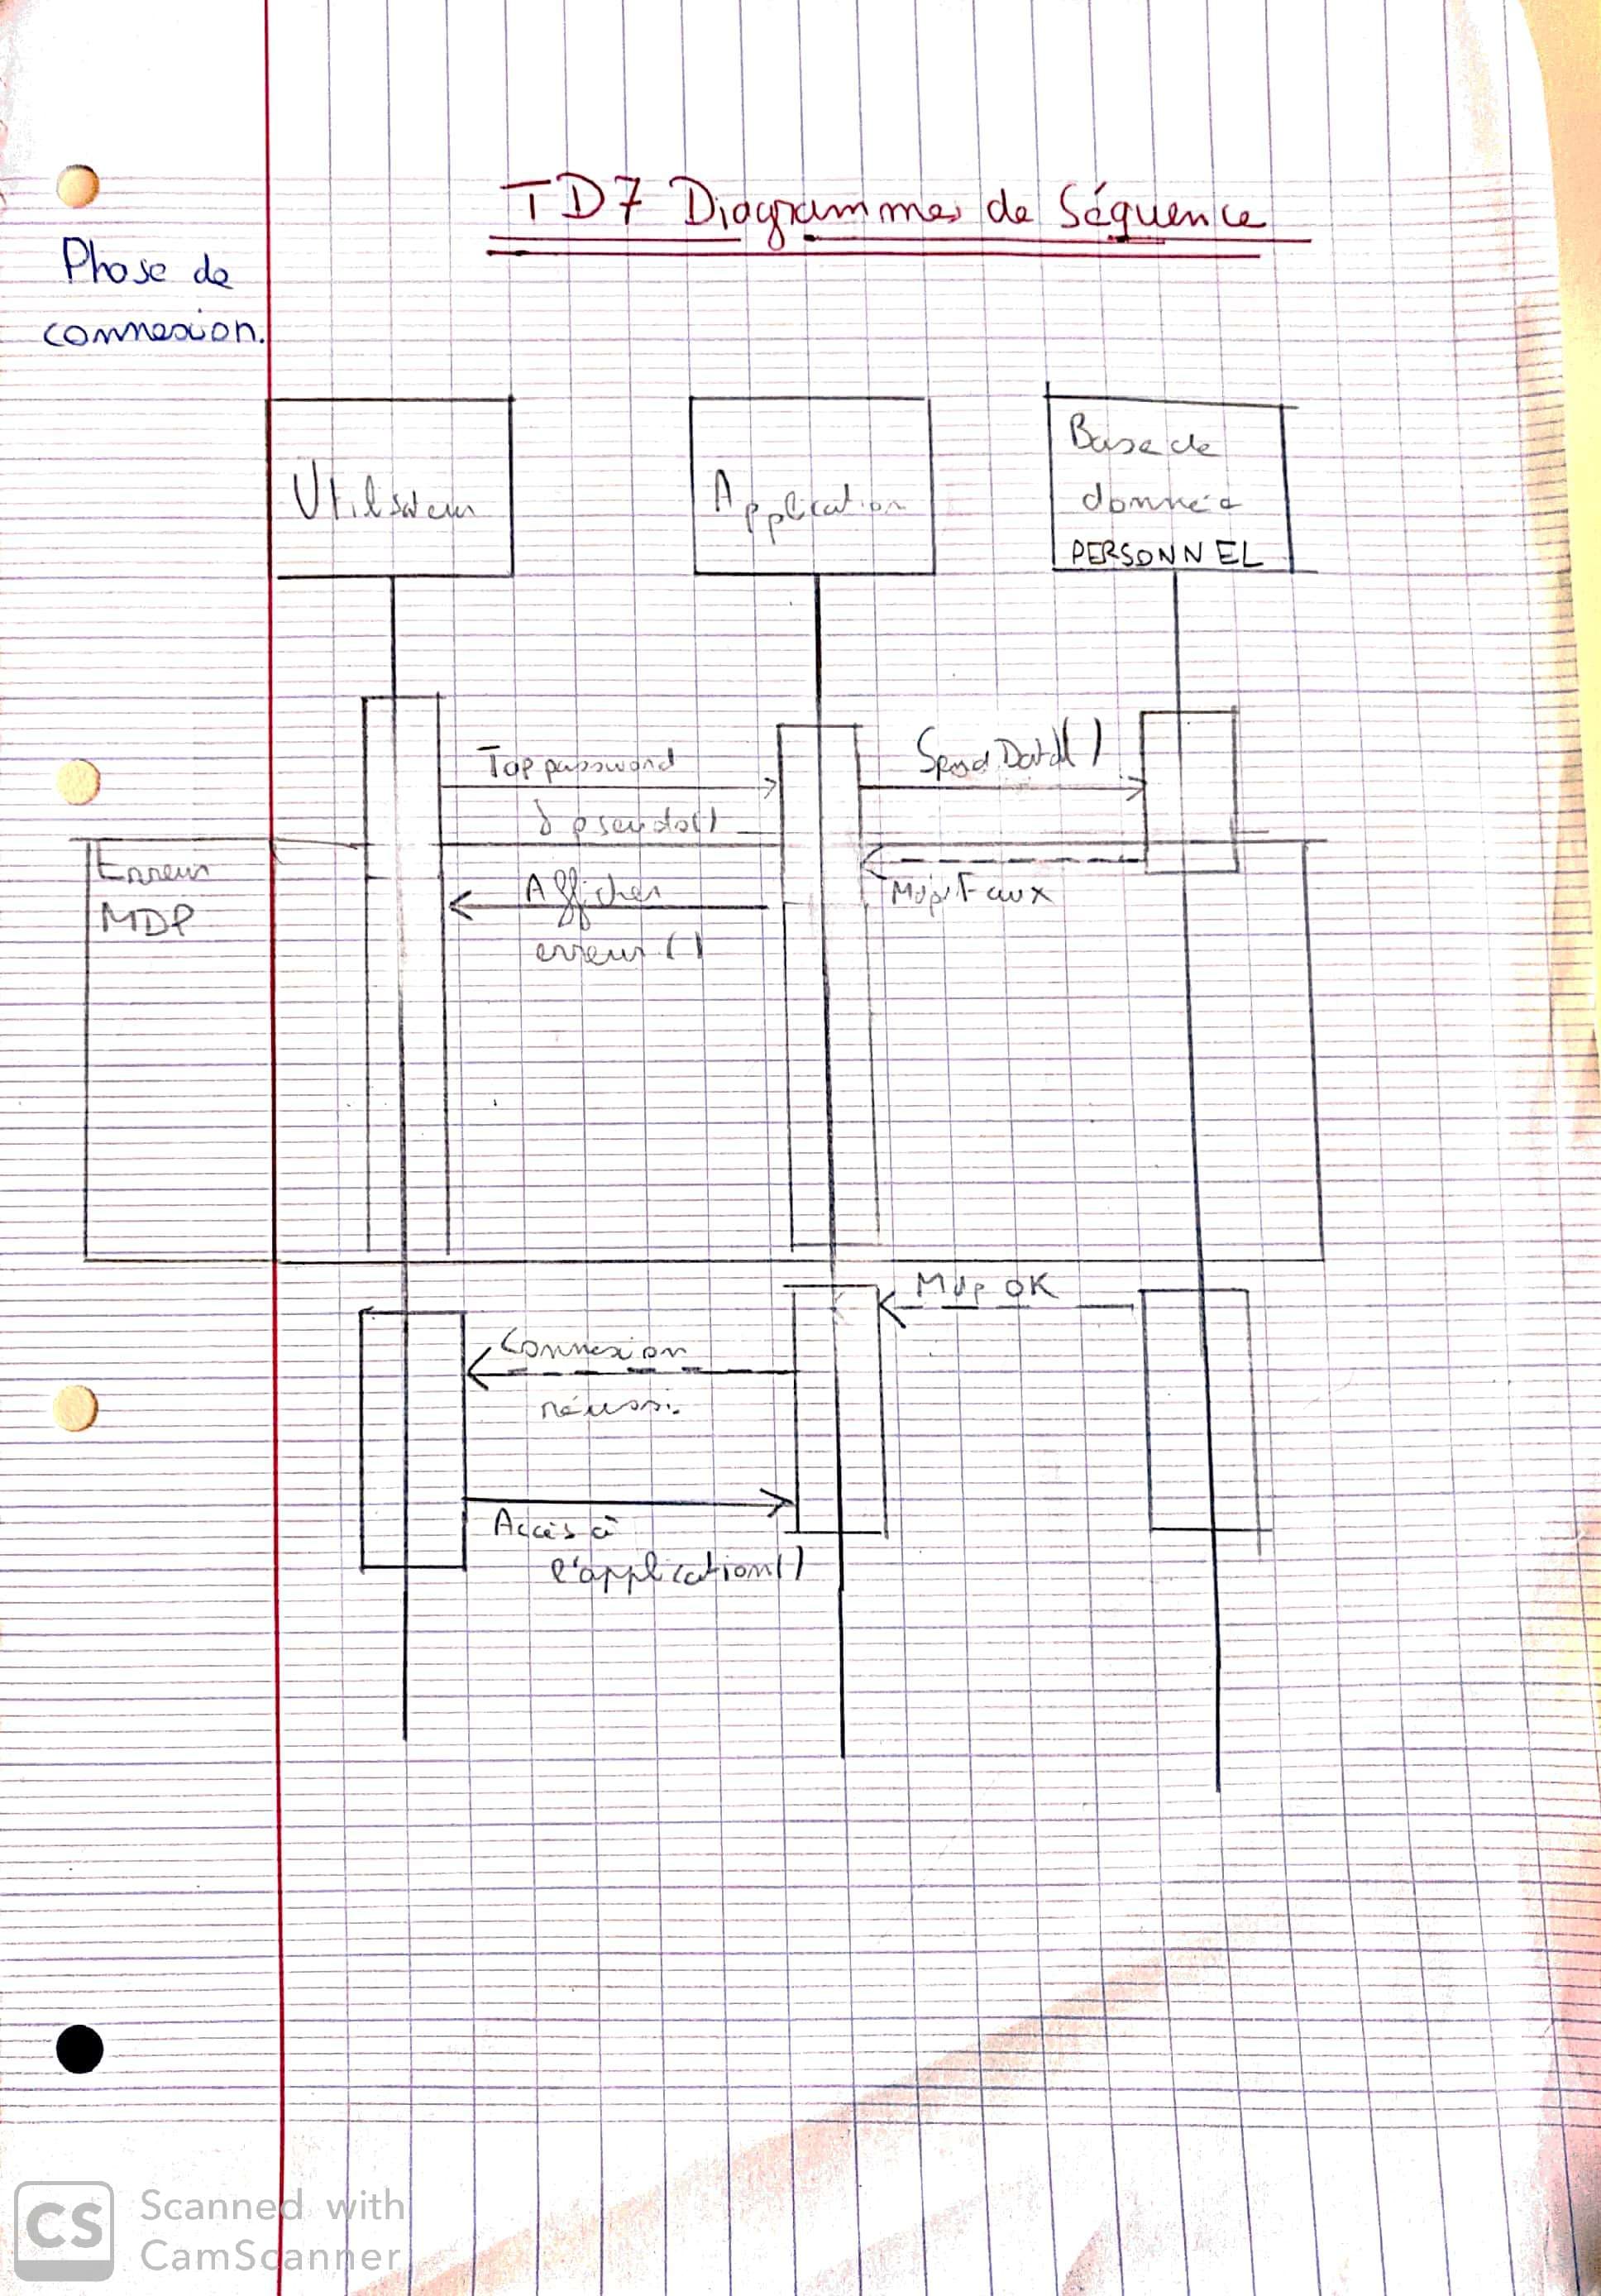 TD7 Diagrammes de Séquence
Phase de
connexion.
Utilisateur
Application
Base de
donnée
PERSONNEL
Tap password
& pseudo()
Send Data()
Erreur
MDP
Mdp Faux
Afficher
erreur ()
Mdp OK
Connexion
réussi
Accès à
l'application()
CS
Scanned with
CamScanner